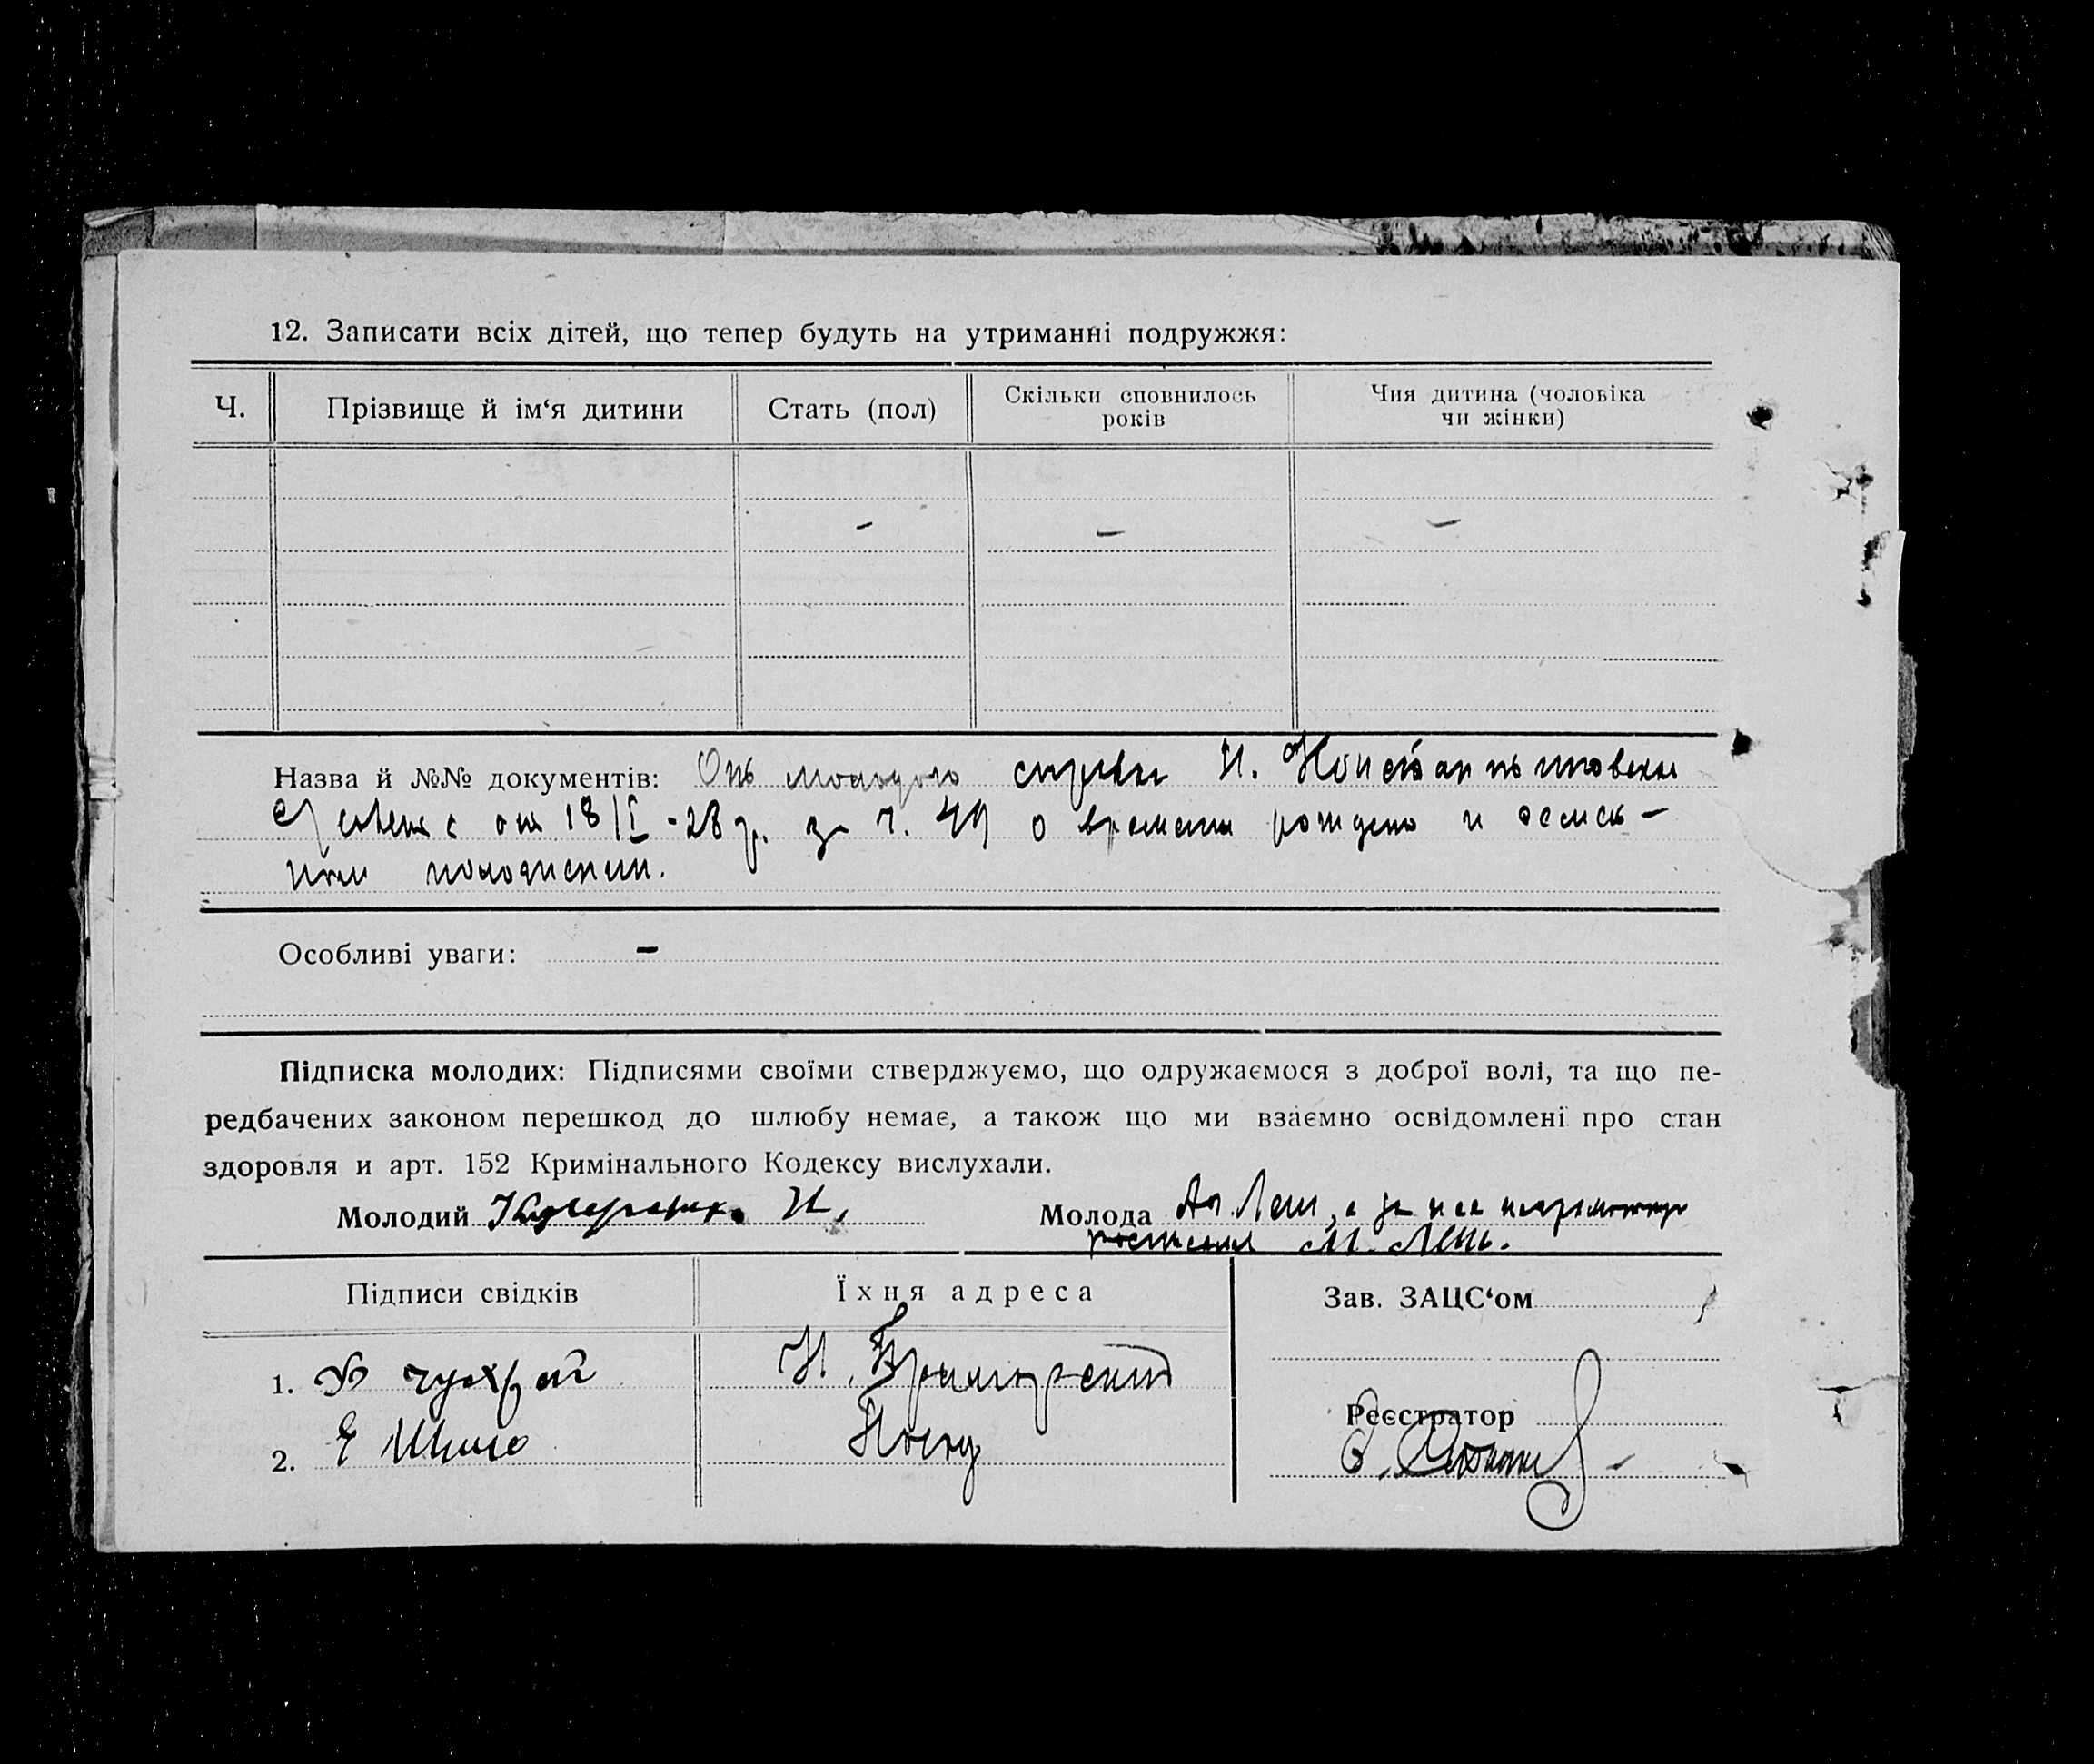 12. Записати всіх дітей, що тепер будуть на утриманні подружжя:
Ч. Прізвище й ім‘я дитини Стать (пол) Скільки сповнилось років Чия дитина (чоловіка чи жінки)
– – –
Назва й №№ документів: От молодого справки Н. Константиновской
от 18/I - 28 р. за ч. 49 о времени рождения и
Особливі уваги: –
Підписка молодих: Підписями своїми стверджуємо, що одружаємося з доброї волі, та що пе-
редбачених законом перешкод до шлюбу немає, а також що ми взаємно освідомлені про стан
здоровля и арт. 152 Кримінального Кодексу вислухали.
Молодий Молода Лень, а за нее неграмотную
М. Лень.
Підписи свідків Їхня адреса Зав. ЗАЦС‘ом
1. Чухрай
Реєстратор
2. Е Шило